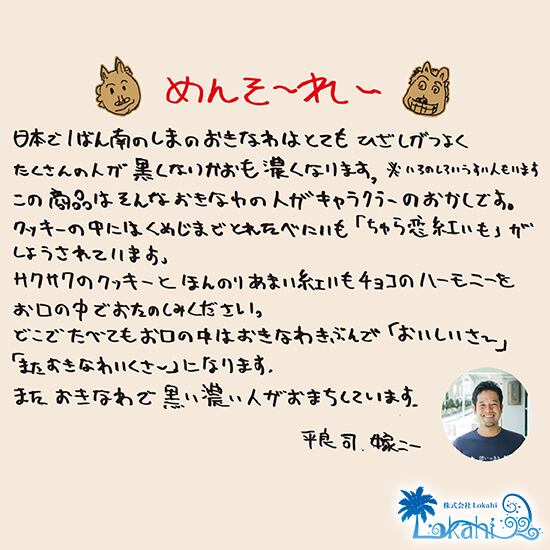 めんそ〜れ〜
日本で1ばん南のしまのおきなわはとても ひざしがつよく
たくさんの人が 黒くなりかおも濃くなります。※いろのしろいうすい人もいます
この商品はそんなおきなわの人がキャラクターのおかしです。
クッキーの中にはくめじまでとれたべにいも「ちゅら恋紅いも」が
しようされています。
サクサクのクッキーと ほんのりあまい紅いもチョコのハーモニーを
お口の中でおたのしみください。
どこでたべてもお口の中はおきなわきぶんで「おいしいさ〜」
「またおきなわいくさ〜」になります。
また おきなわで 黒い濃い人がおまちしています。
平良司.嫁ニー
株式会社Lokahi
Lokahi